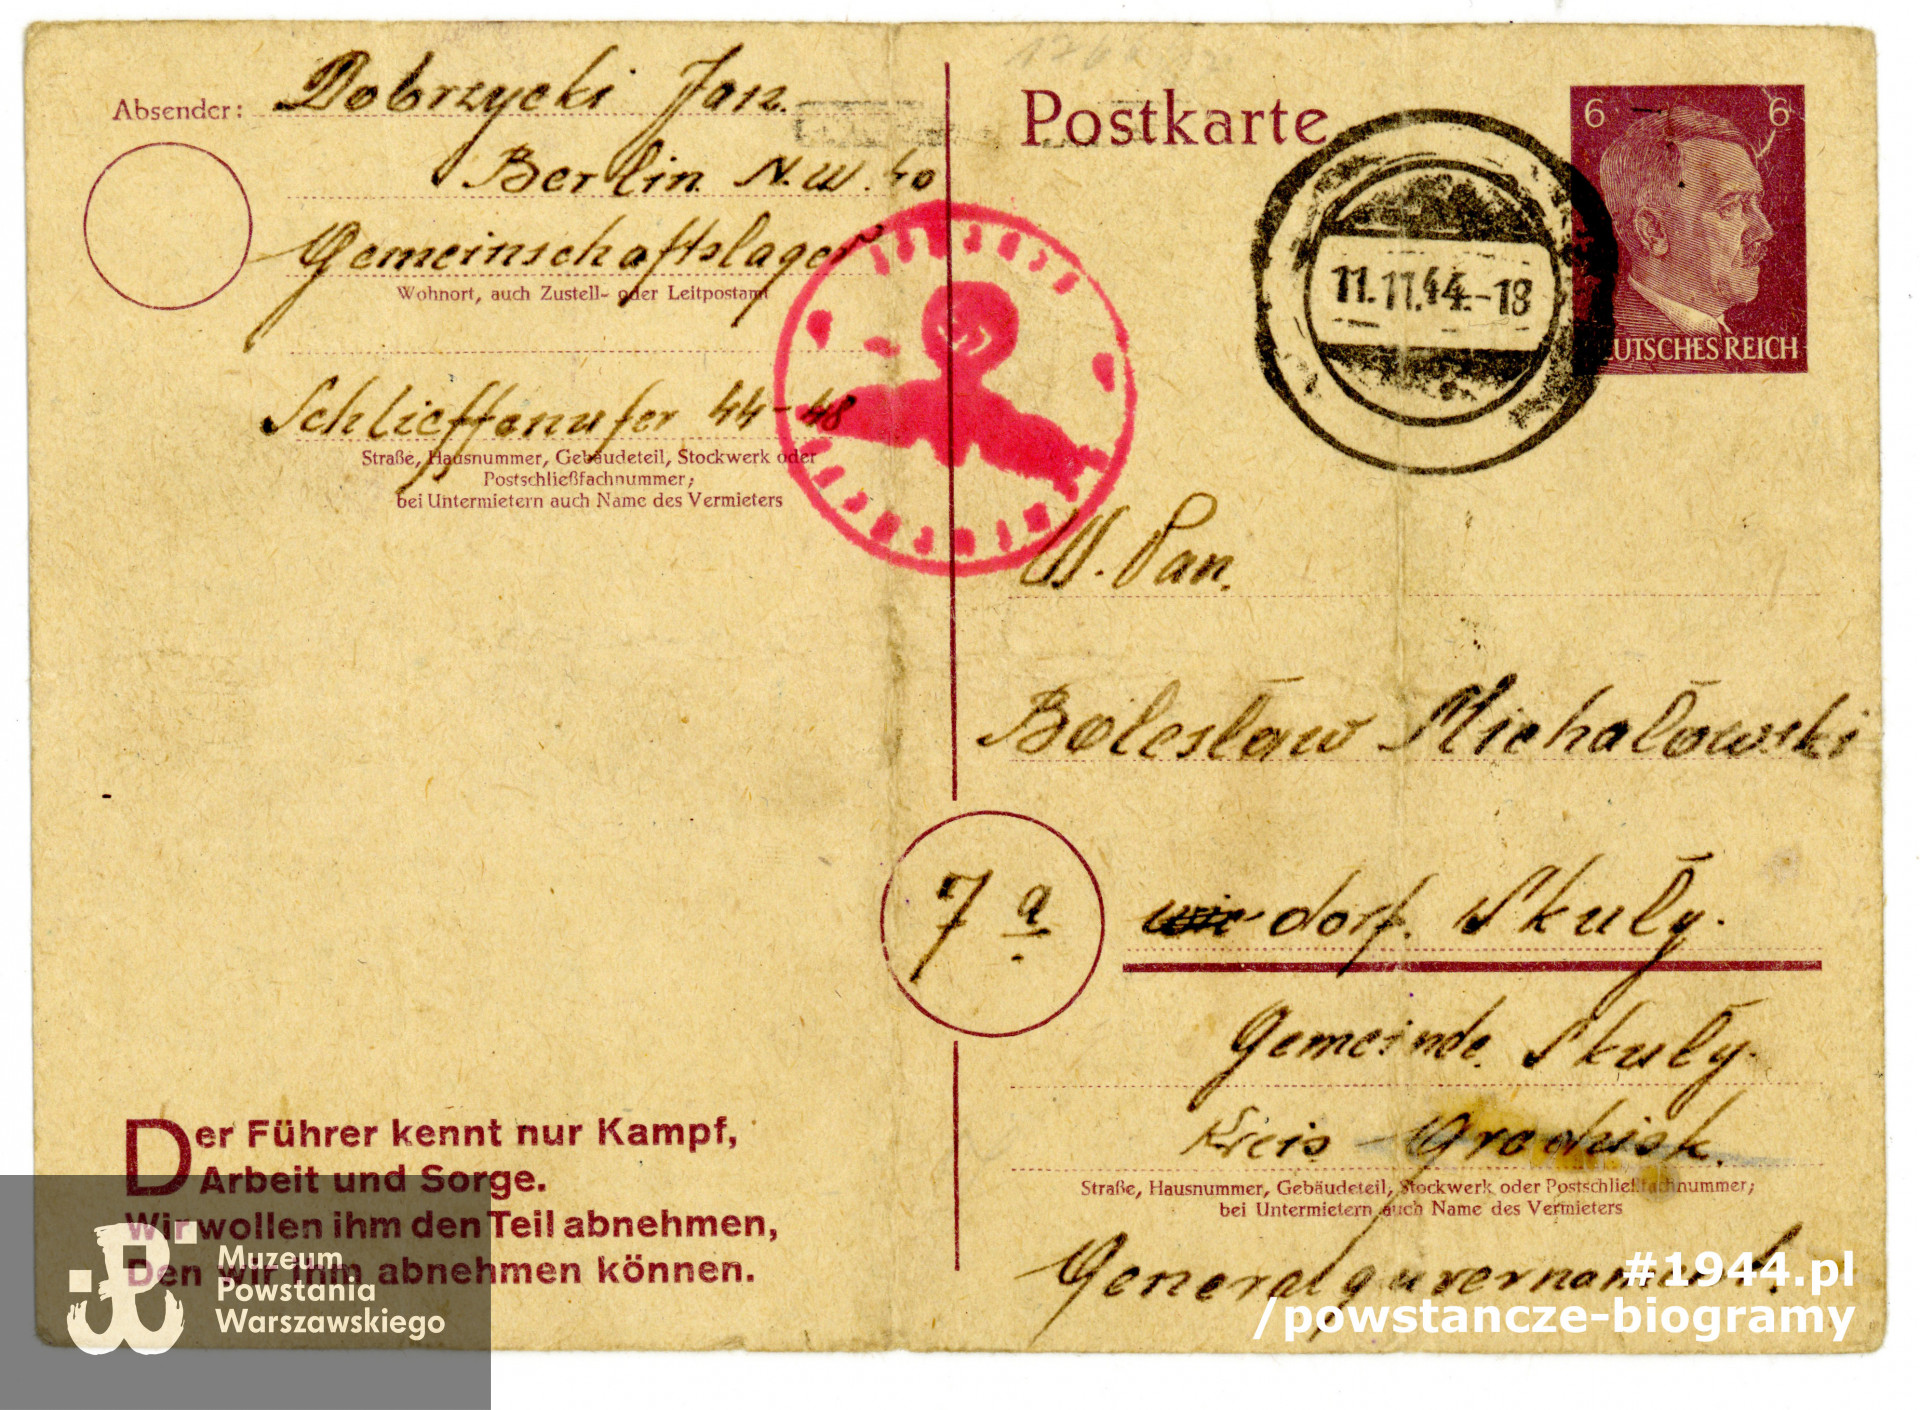 Absender: Dobrzycki Jan.
Berlin N.W. 40
Gemeinschaftslager
Wohnort, auch Zustell- oder Leitpostamt
Schlieffenufer 44-48
Straße, Hausnummer, Gebäudeteil, Stockwerk oder
Postschließfachnummer;
bei Untermietern auch Name des Vermieters
Postkarte
6 6
DEUTSCHES REICH
11.11.44.-18
W. Pan.
Bolesław Michałowski
7a
dorf. Skuły.
Gemeinde. Skuły.
Kreis Grodzisk.
Straße, Hausnummer, Gebäudeteil, Stockwerk oder Postschließfachnummer;
bei Untermietern auch Name des Vermieters
Generalguvernament.
Der Führer kennt nur Kampf,
Arbeit und Sorge.
Wir wollen ihm den Teil abnehmen,
Den wir ihm abnehmen können.
Muzeum
Powstania
Warszawskiego
#1944.pl
/powstancze-biogramy